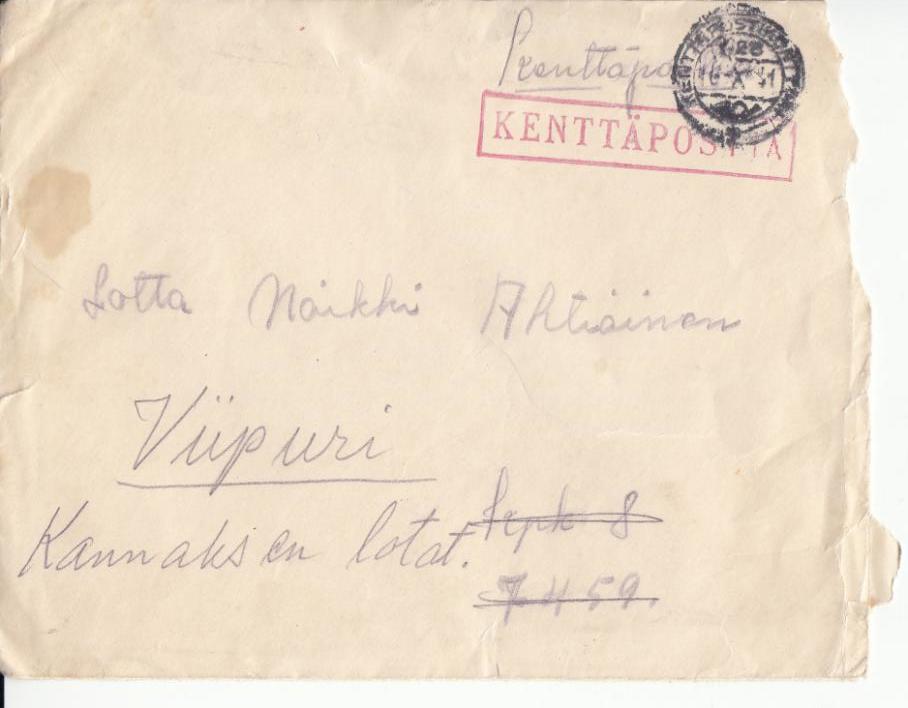 Kenttäpostia
KENTTÄPOSTIA
Lotta Naikki Ahtiainen
Viipuri
Kannaksen lotat.
Kpk 8
7459.